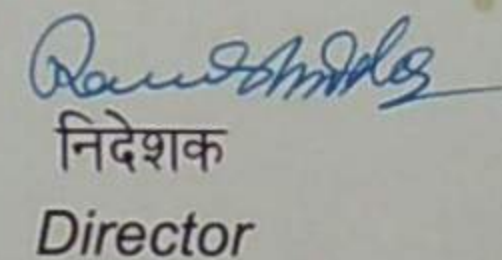 निदेशक
Director